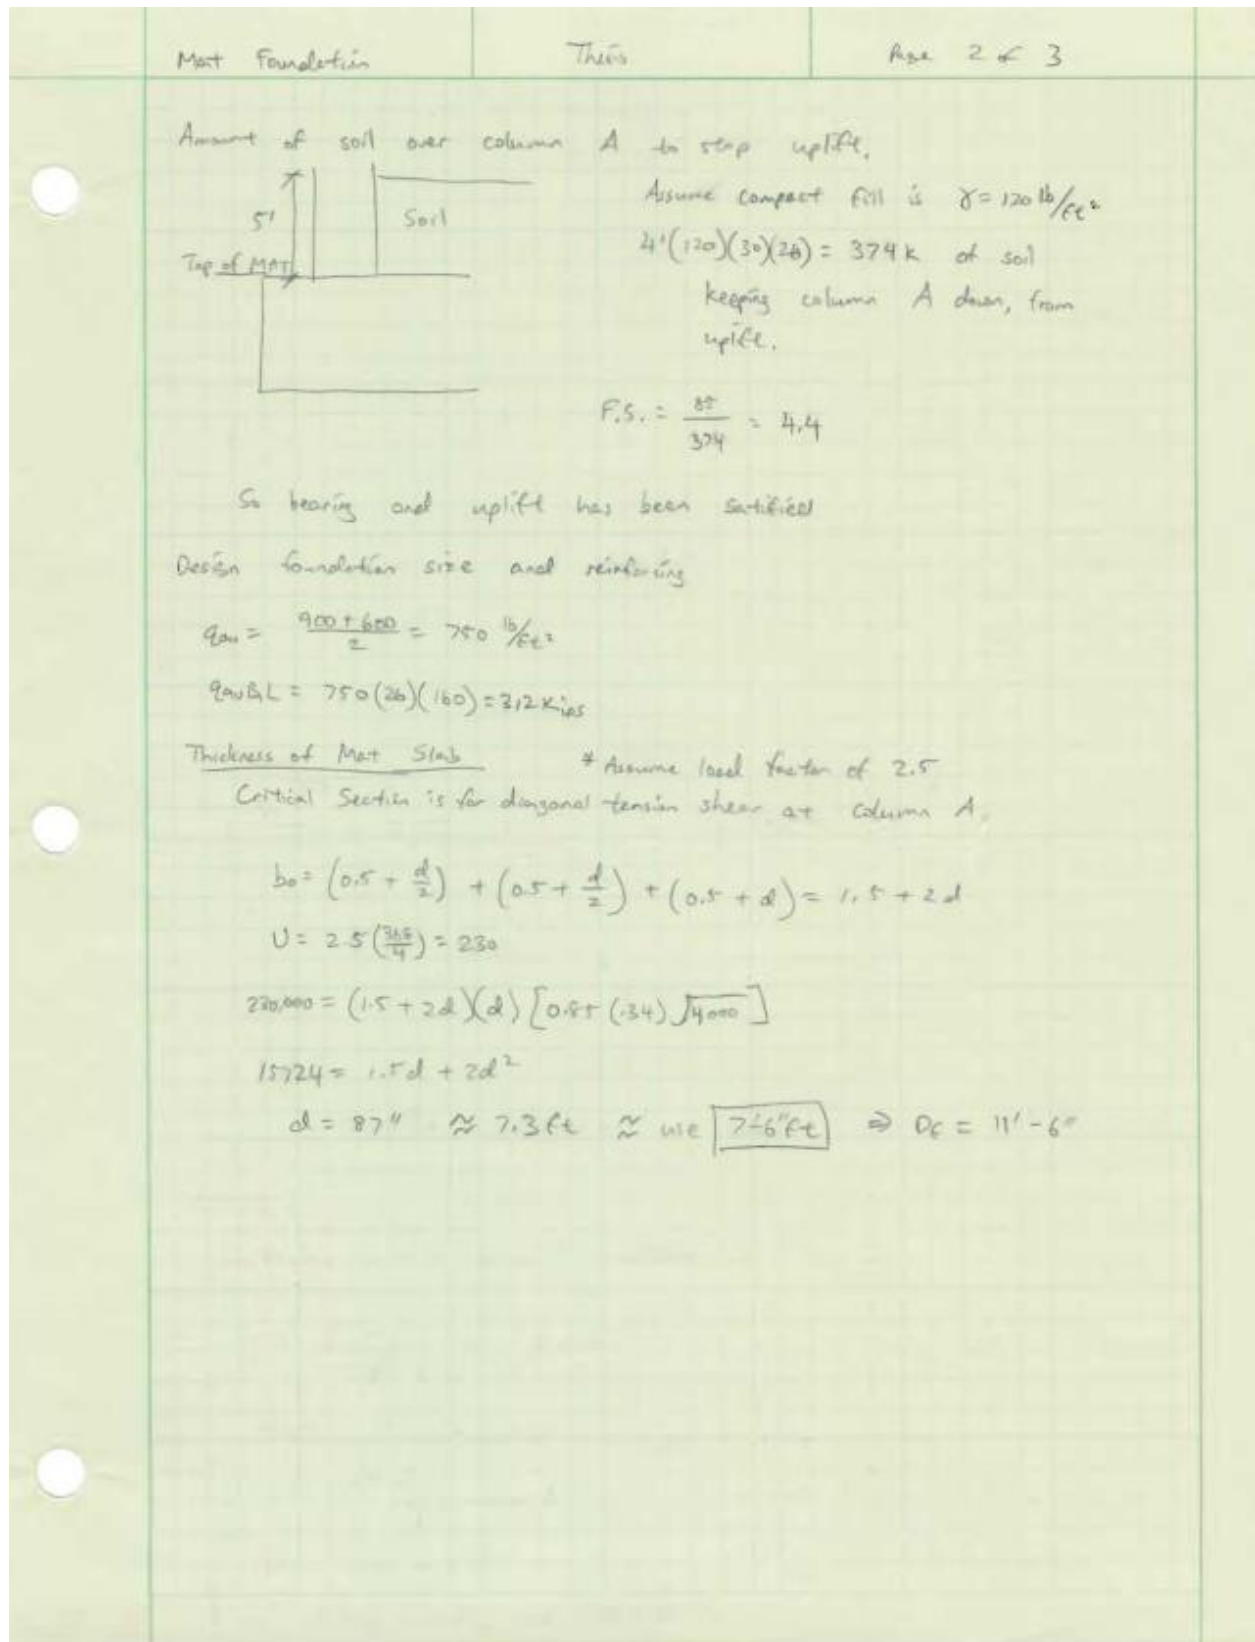 Mat Foundation
Thesis
Page 2 of 3
Amount of soil over column A to stop uplift.
5'
Soil
Top of MAT
Assume compact fill is γ = 120 lb/ft²
4'(120)(30)(26) = 374 k of soil
keeping column A down, from
uplift.
F.S. = 85/374 = 4.4
So bearing and uplift has been satified
Design foundation size and reinforcing
qav = (900 + 600)/2 = 750 lb/ft²
qavBL = 750(26)(160) = 312 Kips
Thickness of Mat Slab * Assume load factor of 2.5
Critical Section is for diagonal tension shear at column A.
bo = (0.5 + d/2) + (0.5 + d/2) + (0.5 + d) = 1.5 + 2d
U = 2.5(368/4) = 230
230,000 = (1.5 + 2d)(d) [0.85 (.34) √4000]
15724 = 1.5d + 2d²
d = 87" ≈ 7.3 ft ≈ use 7'-6" ft ⇒ Df = 11'-6"